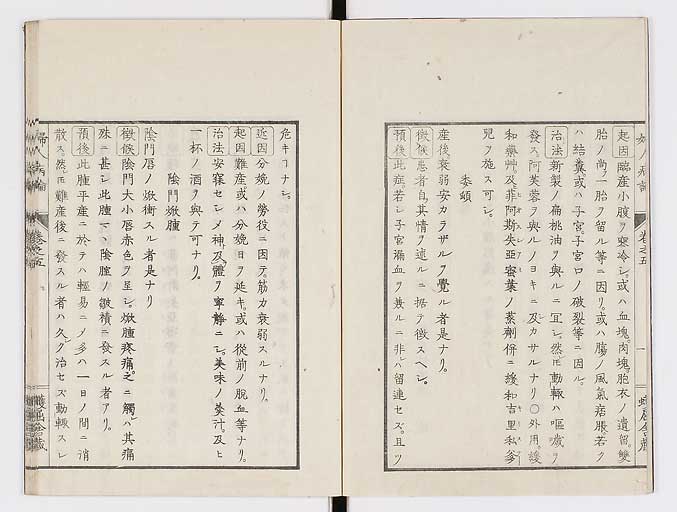 婦人病論 巻之五 一
起因臨産小腹ヲ寒冷シ。或ハ血塊。肉塊。胞衣ノ遺留。雙
胎ノ尚ホ一胎ヲ留ル等ニ因リ。或ハ膓ノ風氣痞脹。若ク
ハ結糞或ハ子宮。子宮口ノ破裂等ニ因ル。
治法新製ノ扁桃油ヲ與ルニ宜シ。然モ動輙ハ嘔歳ヲ
發ス。阿芙蓉ヲ與ルノヨキニ及カサルナリ〇外用。護
和藥艸及菲阿斯失亞蜜葉ノ蒸劑併ニ緩和吉里私爹
兒ヲ施ス可シ。
委頓
産後。衰弱安カラザルヲ覺ル者是ナリ。
徴候患者自其情ヲ述ルニ据テ徴スヘシ。
預後此症。若シ子宮漏血ヲ兼ルニ非レハ留連セズ。且ツ
危キコナシ。
近因分娩ノ勞役ニ因テ。筋力衰弱スルナリ。
起因難産或ハ分娩日ヲ延キ。或ハ從前ノ脱血等ナリ。
治法安寐セシメ神及ヒ體ヲ寧静ニシ。美味ノ羮汁。及ヒ
一杯ノ酒ヲ與テ可ナリ。
陰門焮腫
陰門唇ノ焮衝スル者是ナリ
徴候陰門大小唇赤色ヲ呈シ。焮腫疼痛。之ニ觸レハ其痛
殊ニ甚シ此腫一ハ陰腟ノ皺積ニ發スル者アリ。
預後此腫平産ニ於テハ輕易ニノ多ハ一日ノ間ニ消
散ス。然モ難産後ニ發スル者ハ久ク治セズ動輙スレ
婦人病論 巻之五